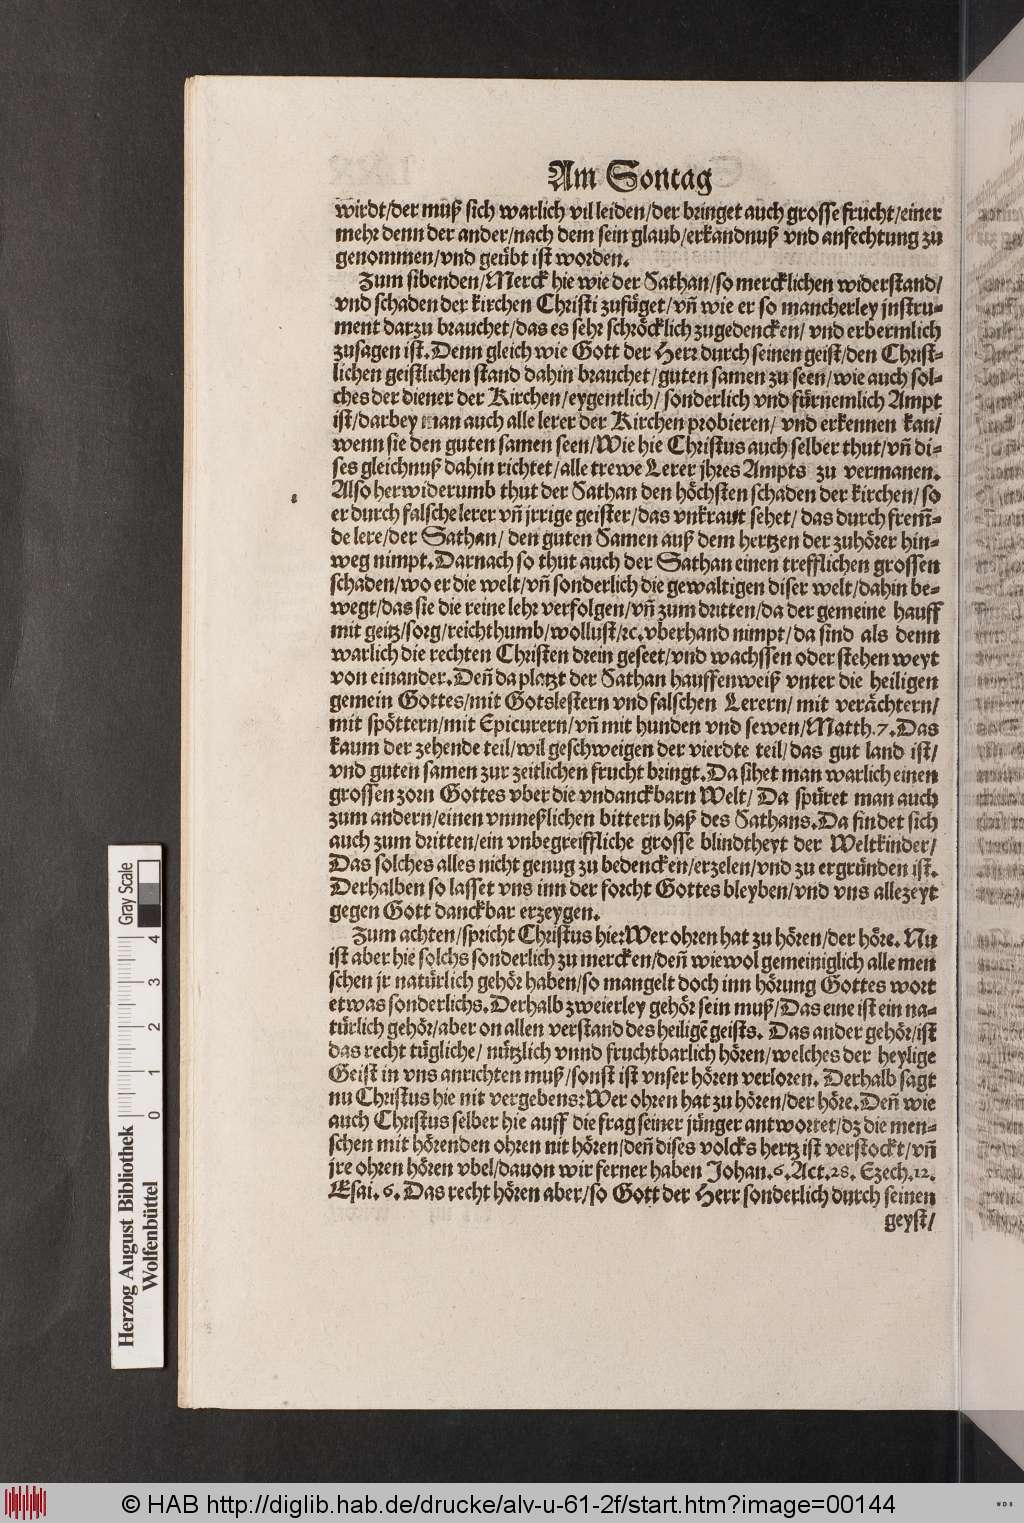 Am Sontag
wirdt/der muß sich warlich vil leiden/der bringet auch grosse frucht/einer
mehr denn der ander/nach dem sein glaub/erkandnuß vnd anfechtung zu
genommen/vnd geübt ist worden.
Zum sibenden/Merck hie wie der Sathan/so mercklichen widerstand/
vnd schaden der kirchen Christi zufüget/vn̄ wie er so mancherley jnstru-
ment darzu brauchet/das es sehr schröcklich zugedencken/ vnd erbermlich
zusagen ist. Denn gleich wie Gott der Herr durch seinen geist/den Christ-
lichen geistlichen stand dahin brauchet/guten samen zu seen/wie auch sol-
ches der diener der Kirchen/eygentlich/ sonderlich vnd fürnemlich Ampt
ist/darbey man auch alle lerer der Kirchen probieren/ vnd erkennen kan/
wenn sie den guten samen seen/Wie hie Christus auch selber thut/vn̄ di-
ses gleichnuß dahin richtet/alle trewe Lerer jhres Ampts zu vermanen.
Also herwiderumb thut der Sathan den höchsten schaden der kirchen/so
er durch falsche lerer vn̄ jrrige geister/das vnkraut sehet/ das durch frem̄-
de lere/der Sathan/ den guten Samen auß dem hertzen der zuhörer hin-
weg nimpt. Darnach so thut auch der Sathan einen trefflichen grossen
schaden/wo er die welt/vn̄ sonderlich die gewaltigen diser welt/dahin be-
wegt/das sie die reine lehr verfolgen/vn̄ zum dritten/da der gemeine hauff
mit geitz/sorg/reichthumb/wollust/ꝛc. vberhand nimpt/da sind als denn
warlich die rechten Christen drein geseet/vnd wachssen oder stehen weyt
von einander. Den̄ da platzt der Sathan hauffenweiß vnter die heiligen
gemein Gottes/mit Gotslestern vnd falschen Lerern/ mit verächtern/
mit spöttern/mit Epicurern/vn̄ mit hunden vnd sewen/Matth. 7. Das
kaum der zehende teil/wil geschweigen der vierdte teil/das gut land ist/
vnd guten samen zur zeitlichen frucht bringt. Da sihet man warlich einen
grossen zorn Gottes vber die vndanckbarn Welt/ Da spüret man auch
zum andern/einen vnmeßlichen bittern haß des Sathans. Da findet sich
auch zum dritten/ein vnbegreiffliche grosse blindtheyt der Weltkinder/
Das solches alles nicht genug zu bedencken/erzelen/vnd zu ergründen ist.
Derhalben so lasset vns inn der forcht Gottes bleyben/vnd vns allezeyt
gegen Gott danckbar erzeygen.
Zum achten/spricht Christus hie:Wer ohren hat zu hören/der höre. Nu
ist aber hie solchs sonderlich zu mercken/den̄ wiewol gemeiniglich alle men
schen jr natürlich gehör haben/so mangelt doch inn hörung Gottes wort
etwas sonderlichs. Derhalb zweierley gehör sein muß/Das eine ist ein na-
türlich gehör/aber on allen verstand des heiligē geists. Das ander gehör/ist
das recht tügliche/ nützlich vnnd fruchtbarlich hören/welches der heylige
Geist in vns anrichten muß/sonst ist vnser hören verloren. Derhalb sagt
nu Christus hie nit vergebens:Wer ohren hat zu hören/der höre. Den̄ wie
auch Christus selber hie auff die frag seiner jünger antwortet/dz die men-
schen mit hörenden ohren nit hören/den̄ dises volcks hertz ist verstockt/vn̄
jre ohren hören vbel/dauon wir ferner haben Johan. 6. Act. 28. Ezech. 12.
Esai. 6. Das recht hören aber/so Gott der Herr sonderlich durch seinen
geyst/
Gray Scale
0 1 2 3 4
Herzog August Bibliothek
Wolfenbüttel
© HAB http://diglib.hab.de/drucke/alv-u-61-2f/start.htm?image=00144